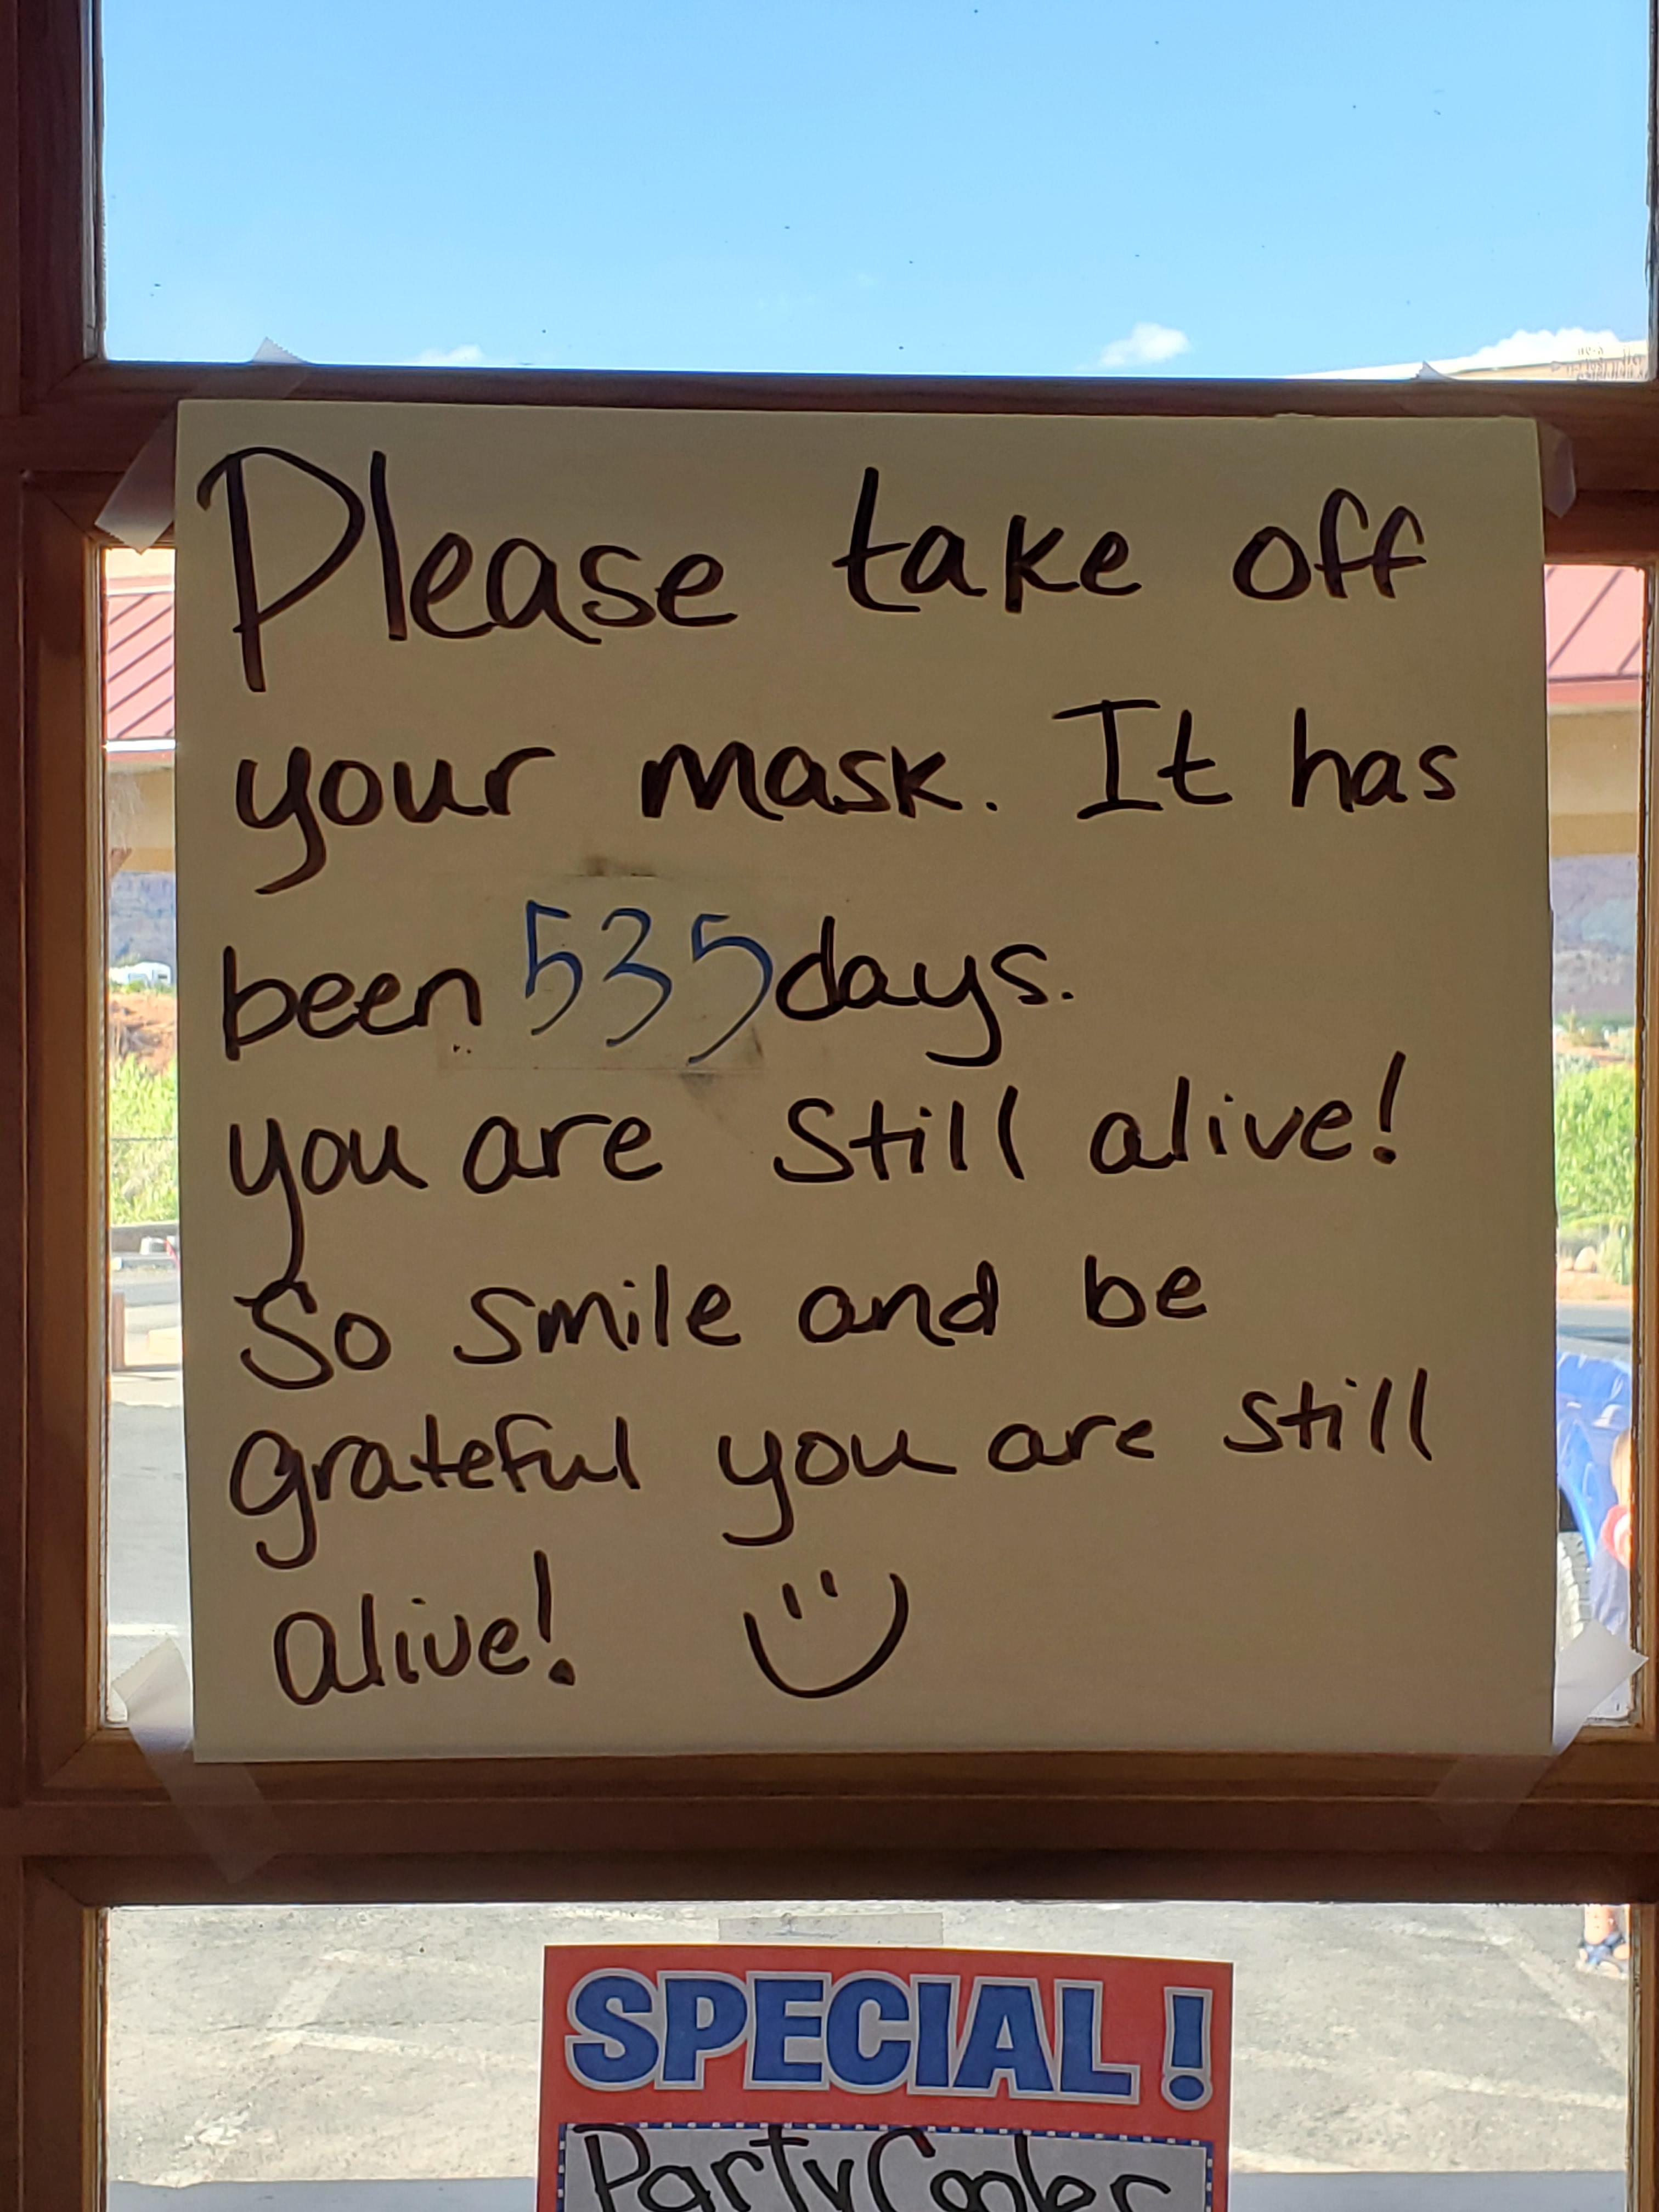 Please take off
your mask. It has
been 535 days.
you are still alive!
So smile and be
grateful you are still
alive!
SPECIAL!
Party Cooler